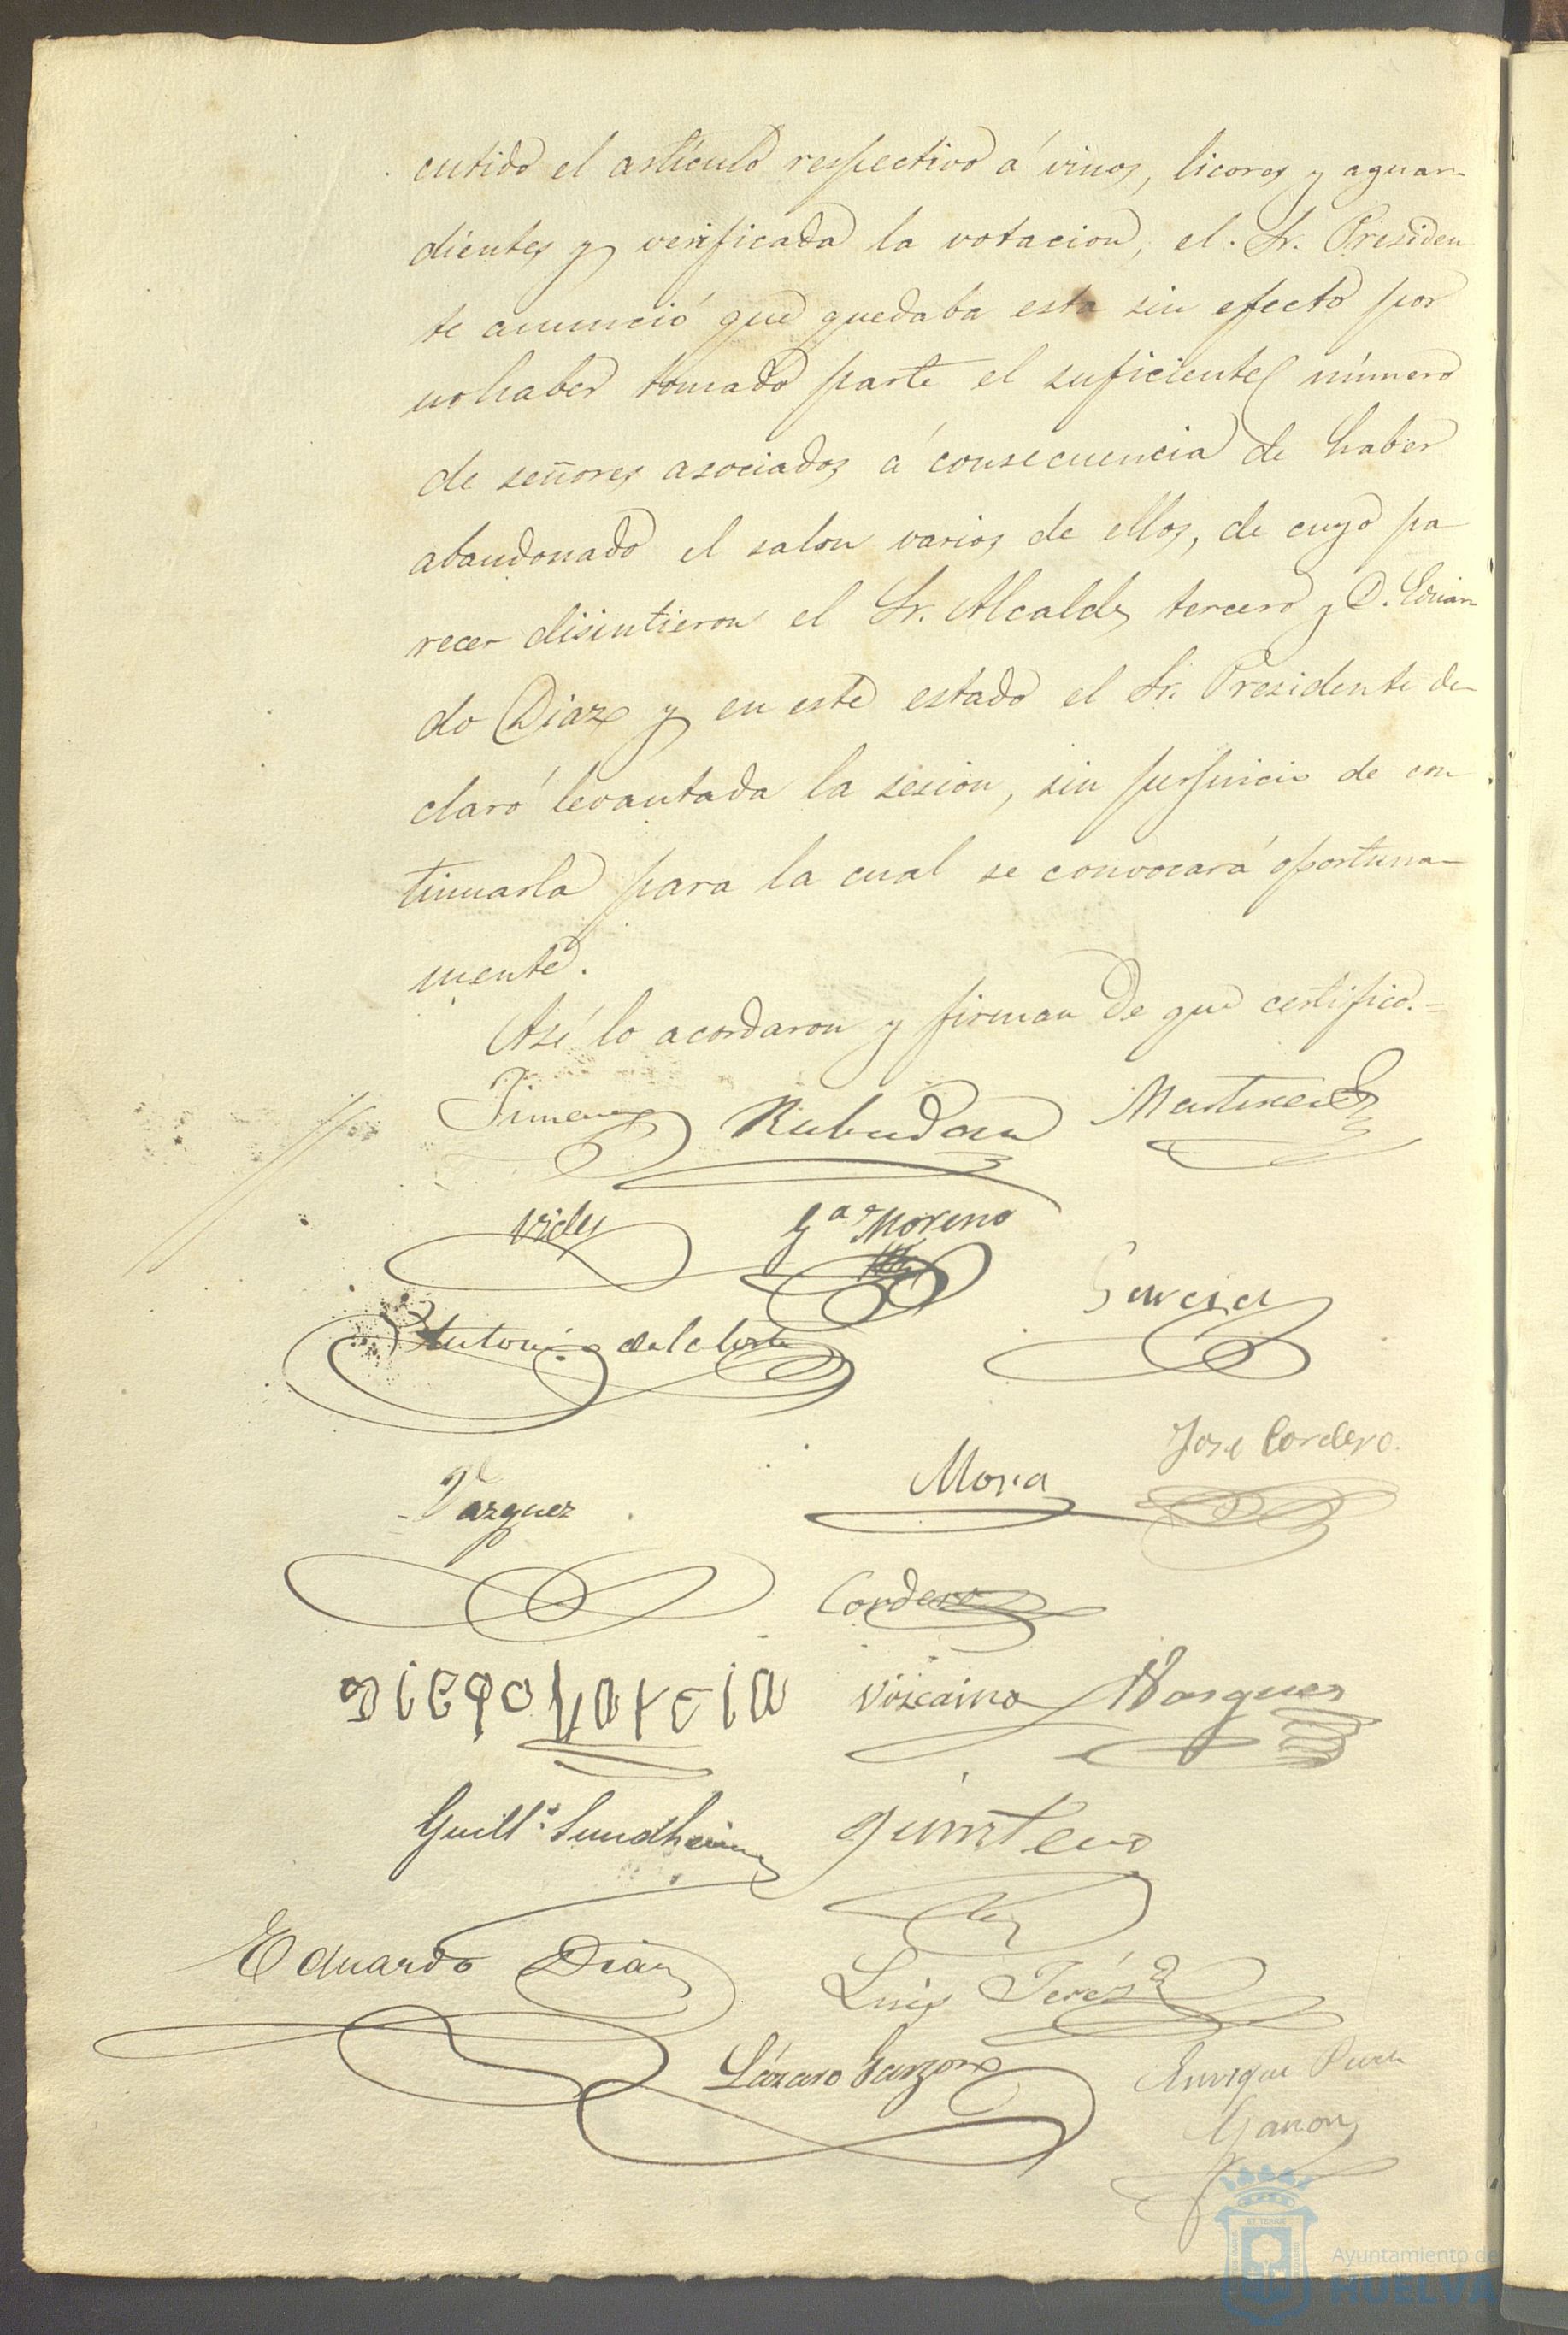 cutido el artículo respectivo á vinos, licores y aguar-
dientes y verificada la votacion, el Sr. Presiden
te anunció que quedaba esta sin efecto por
no haber tomado parte el suficiente número
de señores asociados á consecuencia de haber
abandonado el salon varios de ellos, de cuyo pa
recer disintieron el Sr. Alcalde tercero y D. Eduar
do Diaz y en este estado el Sr. Presidente de-
claró levantada la sesion, sin perjuicio de con
tinuarla para la cual se convocará oportuna-
mente.
Así lo acordaron y firman de que certifico.=
Jimenez Martinez
Gª Moreno
Garcia
Antonio de la Corte
Jose Cordero.
Vazquez Mora
Cordero
Diego Garcia Viscaino Vasquez
Guillº. Sundheim Quintero
Eduardo Diaz Luis Jeréz
Lázaro Garzon Enrique
Ayuntamiento de
HUELVA